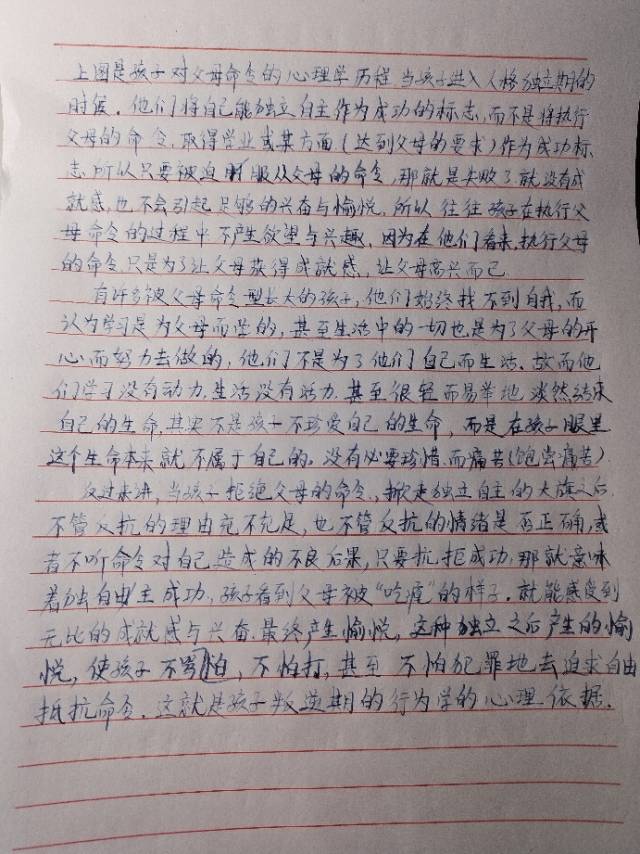 上图是孩子对父母命令的心理学历程,当孩子进入人格独立期的
时候,他们将自己能独立自主作为成功的标志,而不是将执行
父母的命令,取得学业或某方面(达到父母的要求)作为成功标
志,所以只要被迫服从父母的命令,那就是失败了,就没有成
就感,也不会引起足够的兴奋与愉悦,所以往往孩子在执行父
母命令的过程中不产生欲望与兴趣,因为在他们看来,执行父母
的命令只是为了让父母获得成就感,让父母高兴而已
有许多被父母命令型长大的孩子,他们始终找不到自我,而
认为学习是为父母而学的,甚至生活中的一切也是为了父母的开
心而努力去做的,他们不是为了他们自己而生活,故而他
们学习没有动力,生活没有活力,甚至很轻而易举地淡然结束
自己的生命,其实不是孩子不珍爱自己的生命,而是在孩子眼里
这个生命本来就不属于自己的。没有必要珍惜而痛苦(饱尝痛苦)
反过来讲,当孩子拒绝父母的命令,掀起独立自主的大旗之后
不管反抗的理由充不充足,也不管反抗的情绪是否正确,或
者不听命令对自己造成的不良后果,只要抗拒成功,那就意味
着独自由主成功,孩子看到父母被“吃瘪”的样子,就能感受到
无比的成就感与兴奋,最终产生愉悦,这种独立之后产生的愉
悦,使孩子不害怕,不怕打,甚至不怕犯罪地去追求自由
抵抗命令,这就是孩子叛逆期的行为学的心理依据.